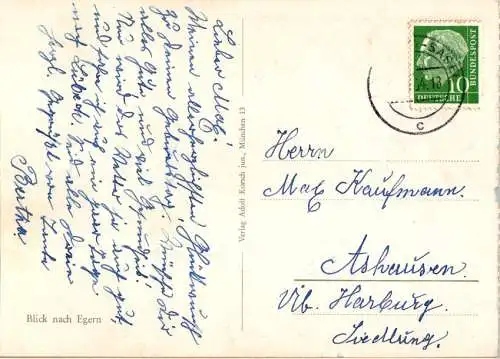 Lieber Max!
Meinen allerherzlichsten Glückwunsch
zu deinem Geburtstag. Wünsche Dir
alles Gute und viel Gesundheit!
Nun wird das Wetter ja auch gut
und fahre ich auf ein paar Tage
nach Lübeck. Und alle Deine
herzl. gegrüßt von Tante
Bertha
Blick nach Egern
Verlag Adolf Korsch jun., München 13
DEUTSCHE BUNDESPOST
10
c
Herrn
Max Kaufmann.
Ashausen.
üb. Harburg.
Siedlung.